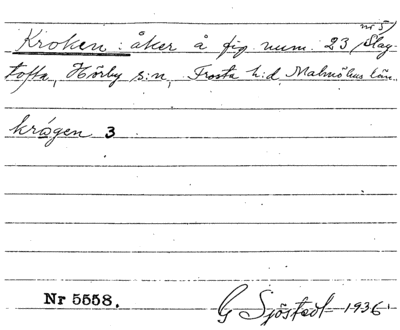 nr 5
Kroken: åker å fig num. 23 Slag-
tofta, Hörby s:n, Frosta h:d, Malmöhus län.
krågen 3
Nr 5558.
G Sjöstedt 1936.